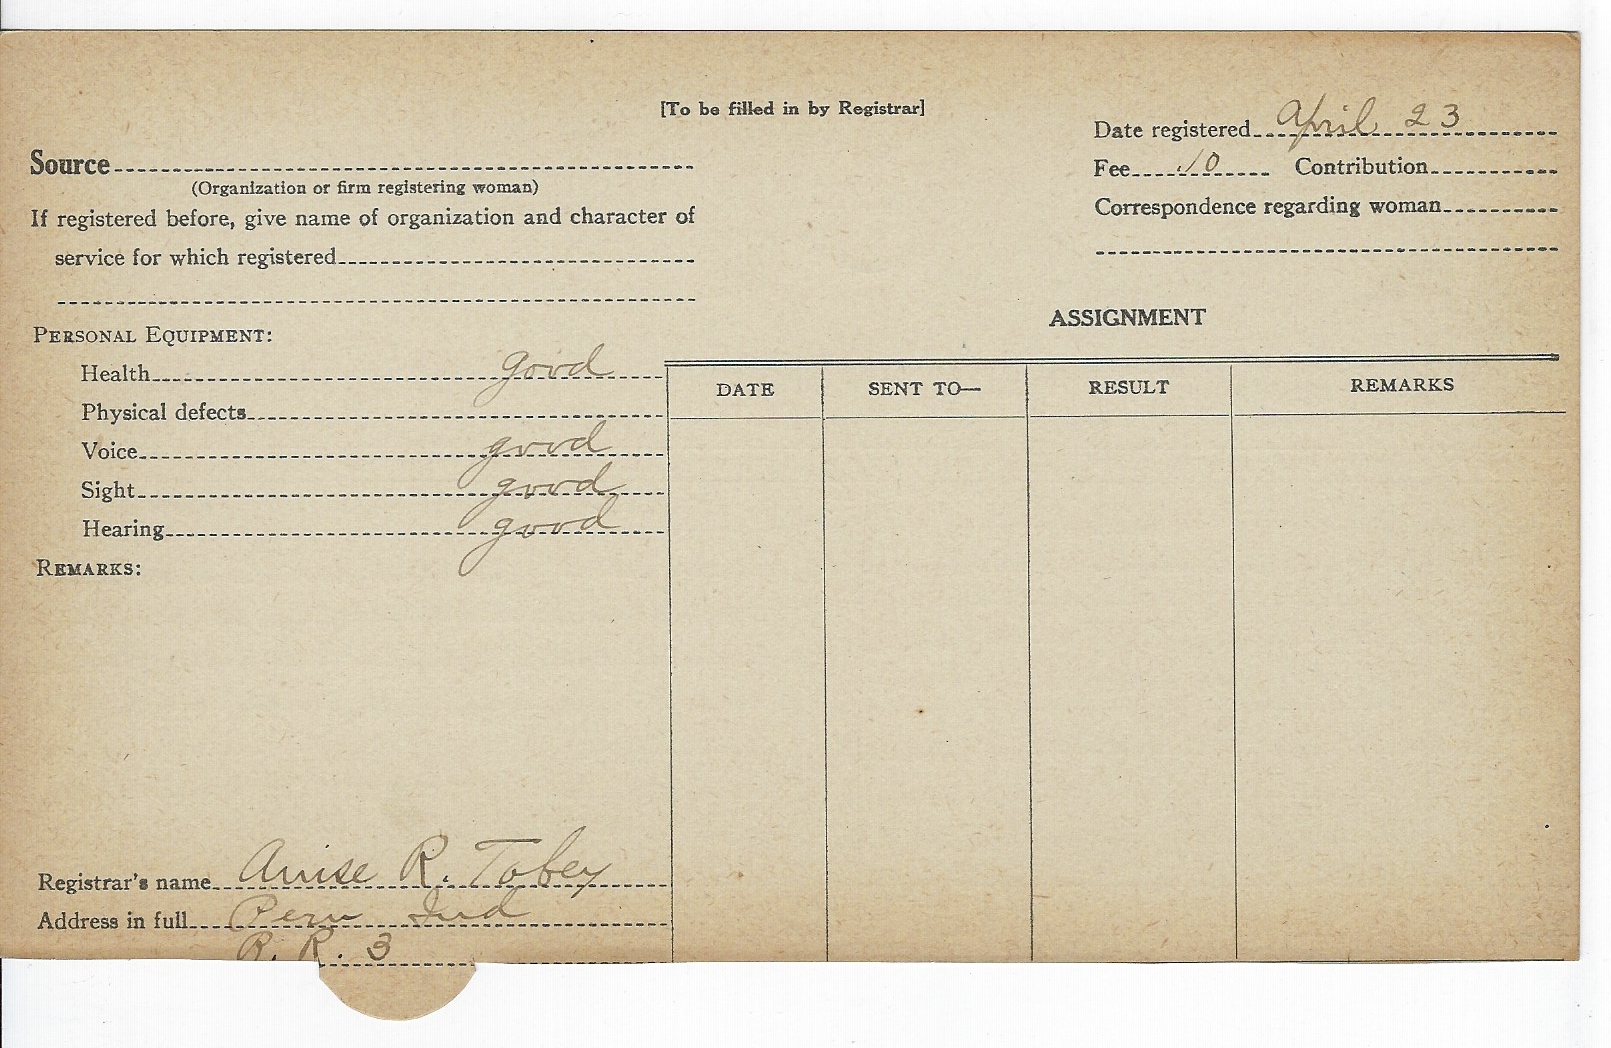 [To be filled in by Registrar]
Date registered April 23
Source
Fee .10 Contribution
(Organization or firm registering woman)
If registered before, give name of organization and character of
Correspondence regarding woman
service for which registered
ASSIGNMENT
PERSONAL EQUIPMENT:
Health good
DATE SENT TO— RESULT REMARKS
Physical defects
Voice good
Sight good
Hearing good
REMARKS:
Registrar's name Anise R. Tobey
Address in full Peru Ind
R. R. 3